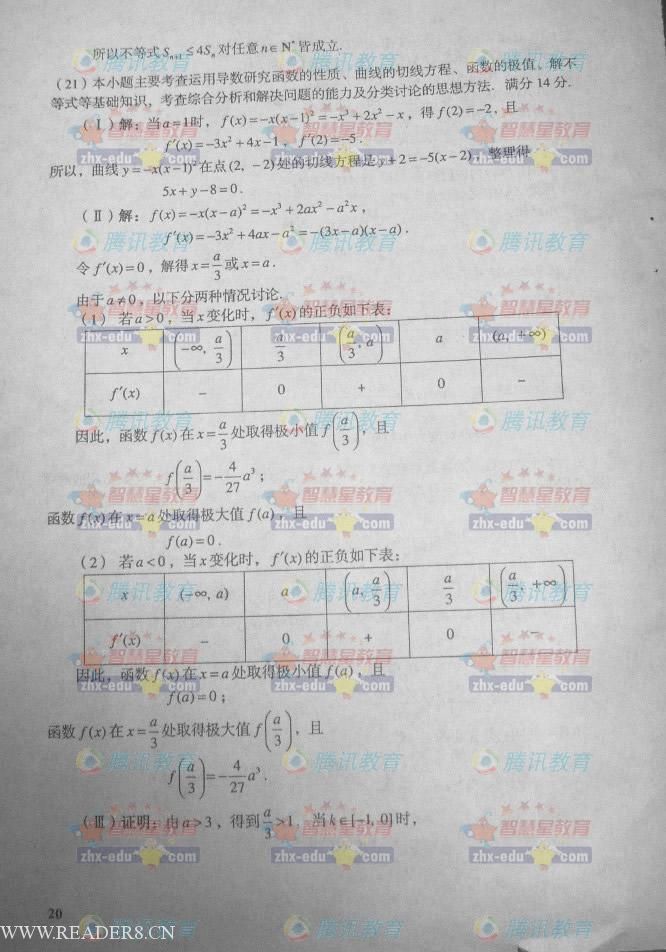 所以不等式 Sₙ₊₁≤4Sₙ 对任意 n∈N* 皆成立.
(21) 本小题主要考查运用导数研究函数的性质、曲线的切线方程、函数的极值、解不
等式等基础知识，考查综合分析和解决问题的能力及分类讨论的思想方法. 满分 14 分.
(Ⅰ) 解：当 a=1 时，f(x)=-x(x-1)²=-x³+2x²-x，得 f(2)=-2，且
f′(x)=-3x²+4x-1，f′(2)=-5.
所以，曲线 y=-x(x-1)² 在点 (2, -2) 处的切线方程是 y+2=-5(x-2)，整理得
5x+y-8=0.
(Ⅱ) 解：f(x)=-x(x-a)²=-x³+2ax²-a²x，
f′(x)=-3x²+4ax-a²=-(3x-a)(x-a).
令 f′(x)=0，解得 x=a/3 或 x=a.
由于 a≠0，以下分两种情况讨论.
(1) 若 a>0，当 x 变化时，f′(x) 的正负如下表：
x (-∞, a/3) a/3 (a/3, a) a (a, +∞)
f′(x) - 0 + 0 -
因此，函数 f(x) 在 x=a/3 处取得极小值 f(a/3)，且
f(a/3)=-4/27 a³；
函数 f(x) 在 x=a 处取得极大值 f(a)，且
f(a)=0.
(2) 若 a<0，当 x 变化时，f′(x) 的正负如下表：
x (-∞, a) a (a, a/3) a/3 (a/3, +∞)
f′(x) - 0 + 0 -
因此，函数 f(x) 在 x=a 处取得极小值 f(a)，且
f(a)=0；
函数 f(x) 在 x=a/3 处取得极大值 f(a/3)，且
f(a/3)=-4/27 a³.
(Ⅲ) 证明：由 a>3，得到 a/3>1，当 k∈[-1, 0] 时，
20
WWW.READER8.CN
腾讯教育
智慧星教育
zhx-edu com